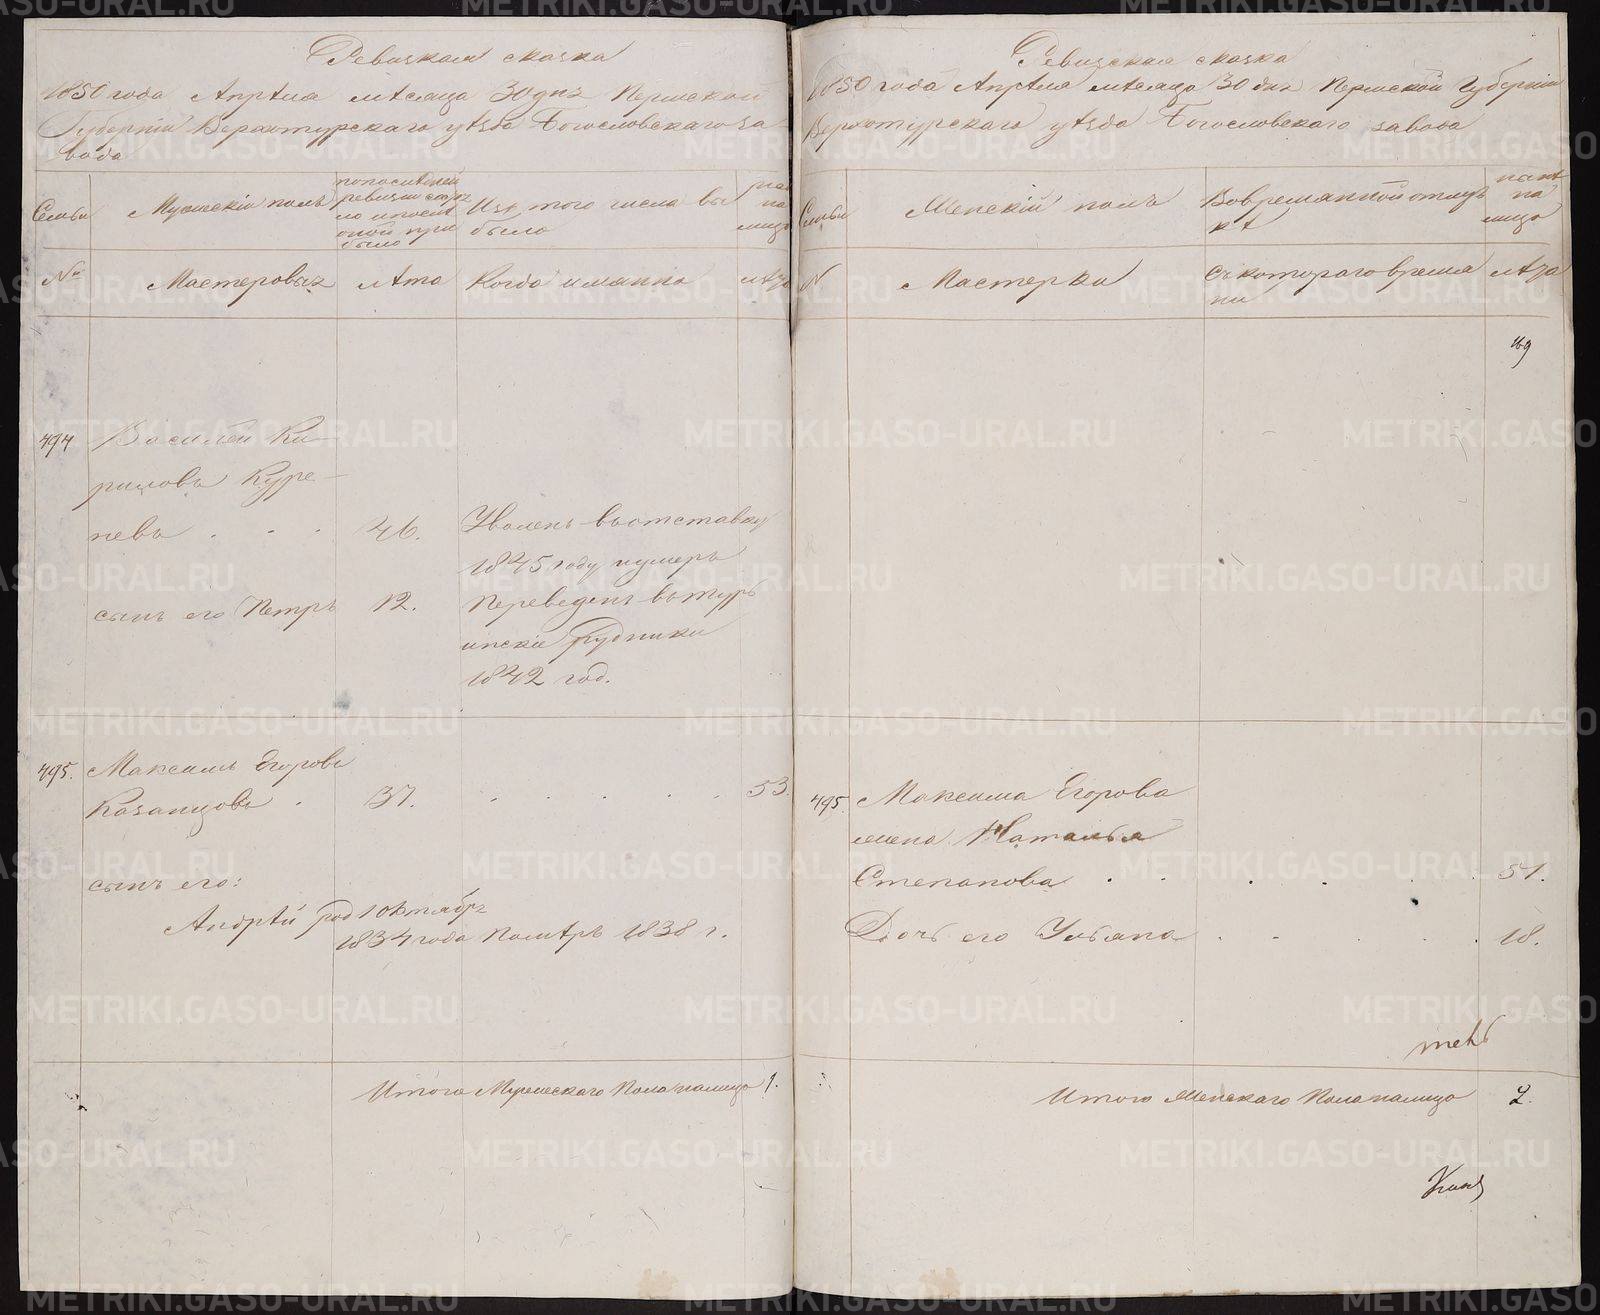 Ревизкая сказка
1850 года Апреля месяца 30 дня Пермской
Губерніи Верхотурскаго уѣзда Богословскаго за
вода
Семьи
Мужескій полъ
по последней
ревизіи состо
яло и после
оной при
было
Изъ того числа вы
было
на
лицо
№
Мастеровыхъ
лѣта
Когда именно
лѣта
494
Василей Ки-
риловъ Куре-
невъ . . .
46.
Уволенъ въ отставку
1845 году умеръ
сынъ его Петръ
12.
Переведенъ въ турь
инскіе рудники
1842 год.
495.
Максимъ Егоровъ
Казанцовъ .
37.
53.
сынъ его:
Андрѣй род 1 октября
1834 года Помѣръ 1838 г.
Итого Мужескаго Пола налицо 1.
Ревизская сказка
1850 года Апрѣля мѣсяца 30 дня Пермской Губерніи
Верхотурскаго уѣзда Богословскаго завода
Семьи
Женскій полъ
Во временной отлуч
кѣ
на
лицо
N
Мастерки
Съ котораго време
ни
лѣта
169
495
Максима Егорова
жена Наталья
Степанова . . . . .
51.
Дочь его Ульяна . . . .
18.
Итого Женскаго Пола налицо 2.
METRIKI.GASO-URAL.RU